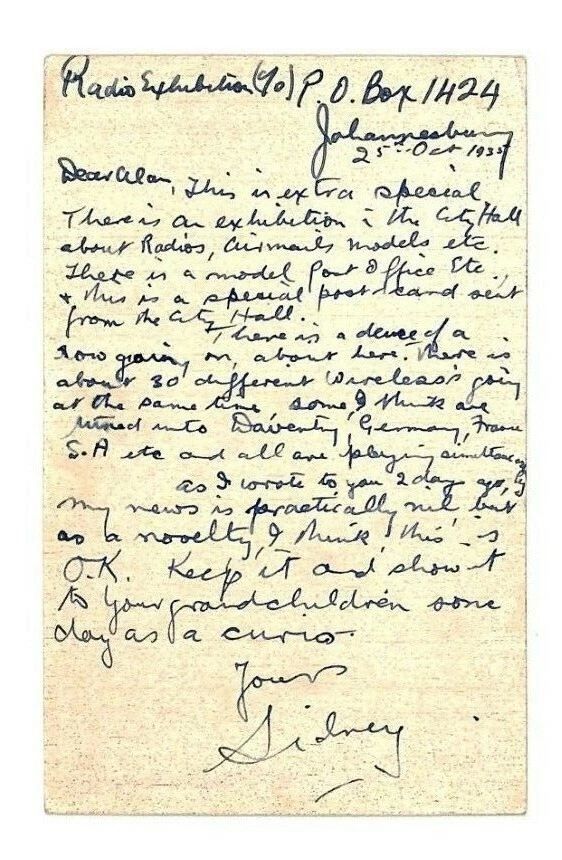 Radio Exhibition (c/o) P.O. Box 1424
Johannesburg
25th Oct 1935
Dear Alan, This is extra special
There is an exhibition i the City Hall
about Radios, Airmails models etc.
There is a model Post Office Etc.,
+ this is a special post-card sent
from the City Hall.
There is a deuce of a
row going on, about here. There is
about 30 different Wireless's going
at the same time, some, I think are
tuned into Daventry, Germany, France
S.A etc and all are playing simultaneously
as I wrote to you 2 days ago,
my news is practically nil but
as a novelty, I think, this is
O.K. Keep it and show it
to your grandchildren some
day as a curio.
Yours
Sidney